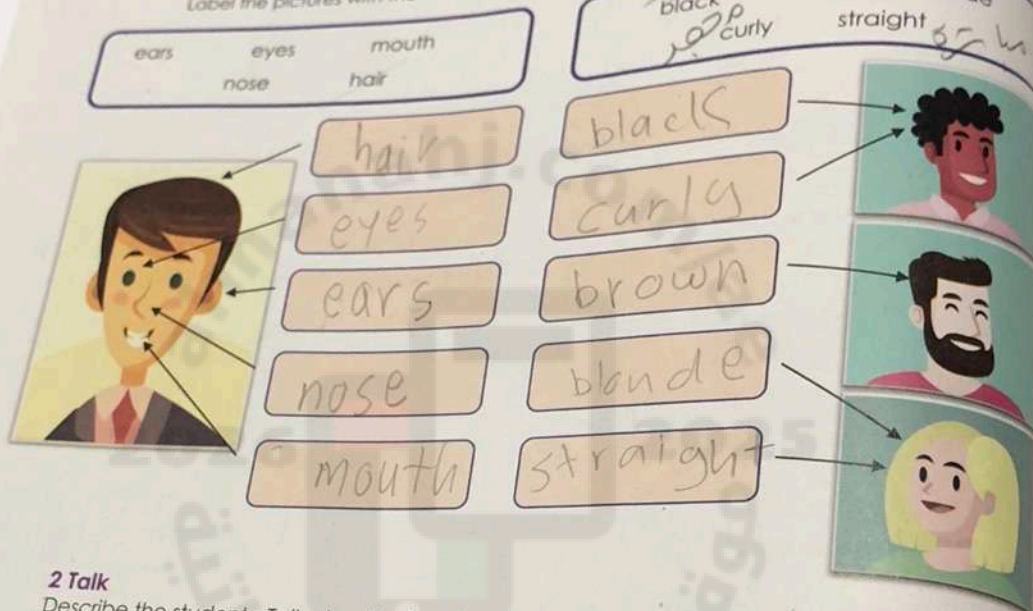 Label the pictures with the
ears eyes mouth
nose hair
black
curly straight
hair
eyes
ears
nose
mouth
black
curly
brown
blonde
straight
2026 2025
2 Talk
Describe the students.